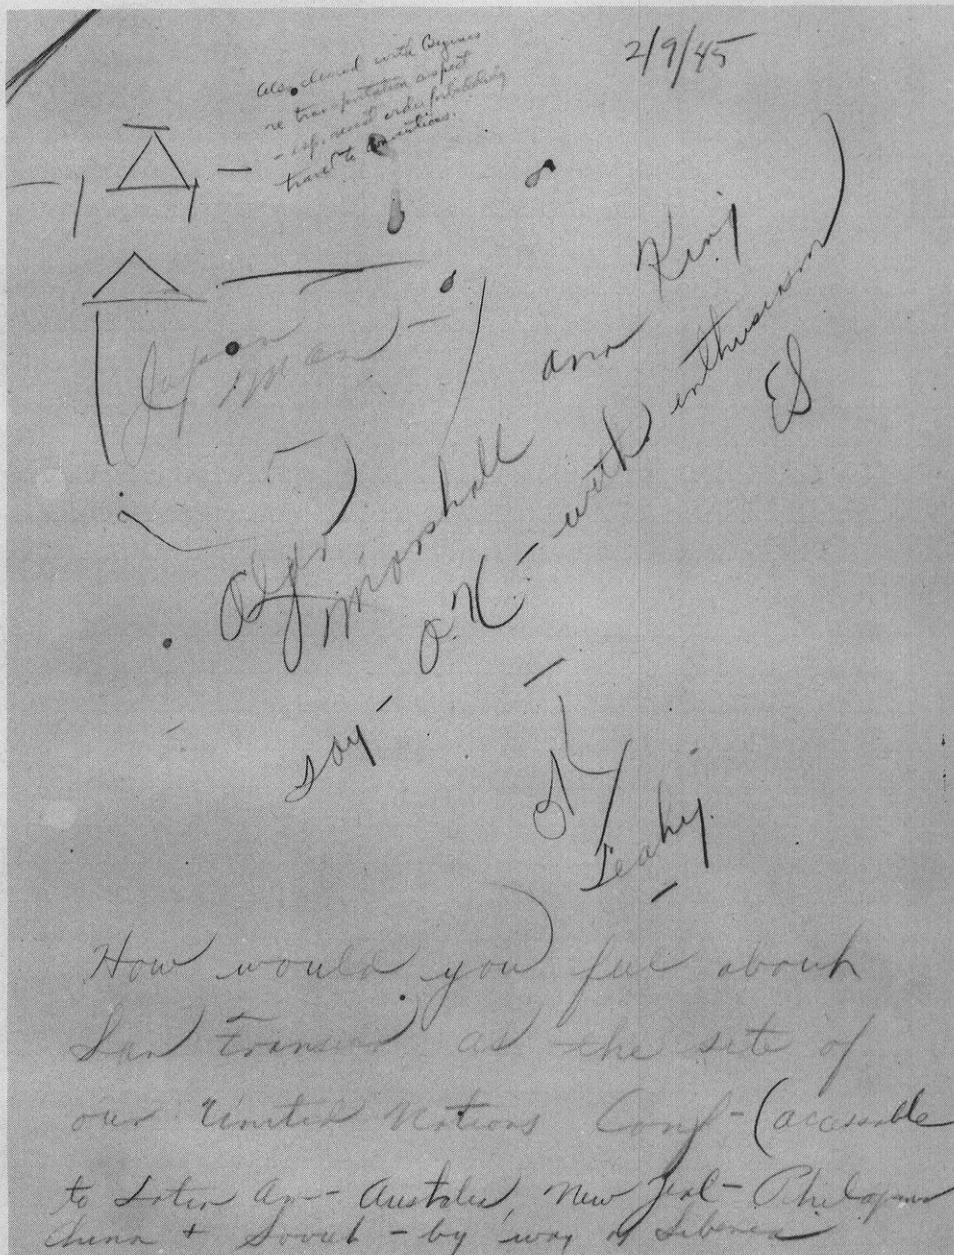 2/9/45
Also cleared with Byrnes
re transportation aspect
- esp. recent order forbidding
travel to conventions.
(Japan
Alger
Marshall and King
say - O.K. - with enthusiasm)
ES
Leahy
How would you feel about
San Francisco as the site of
our United Nations Conf - (accessable
to Latin Am - Australia, New Zeal - Philapines
China + Soviet - by way of Siberia